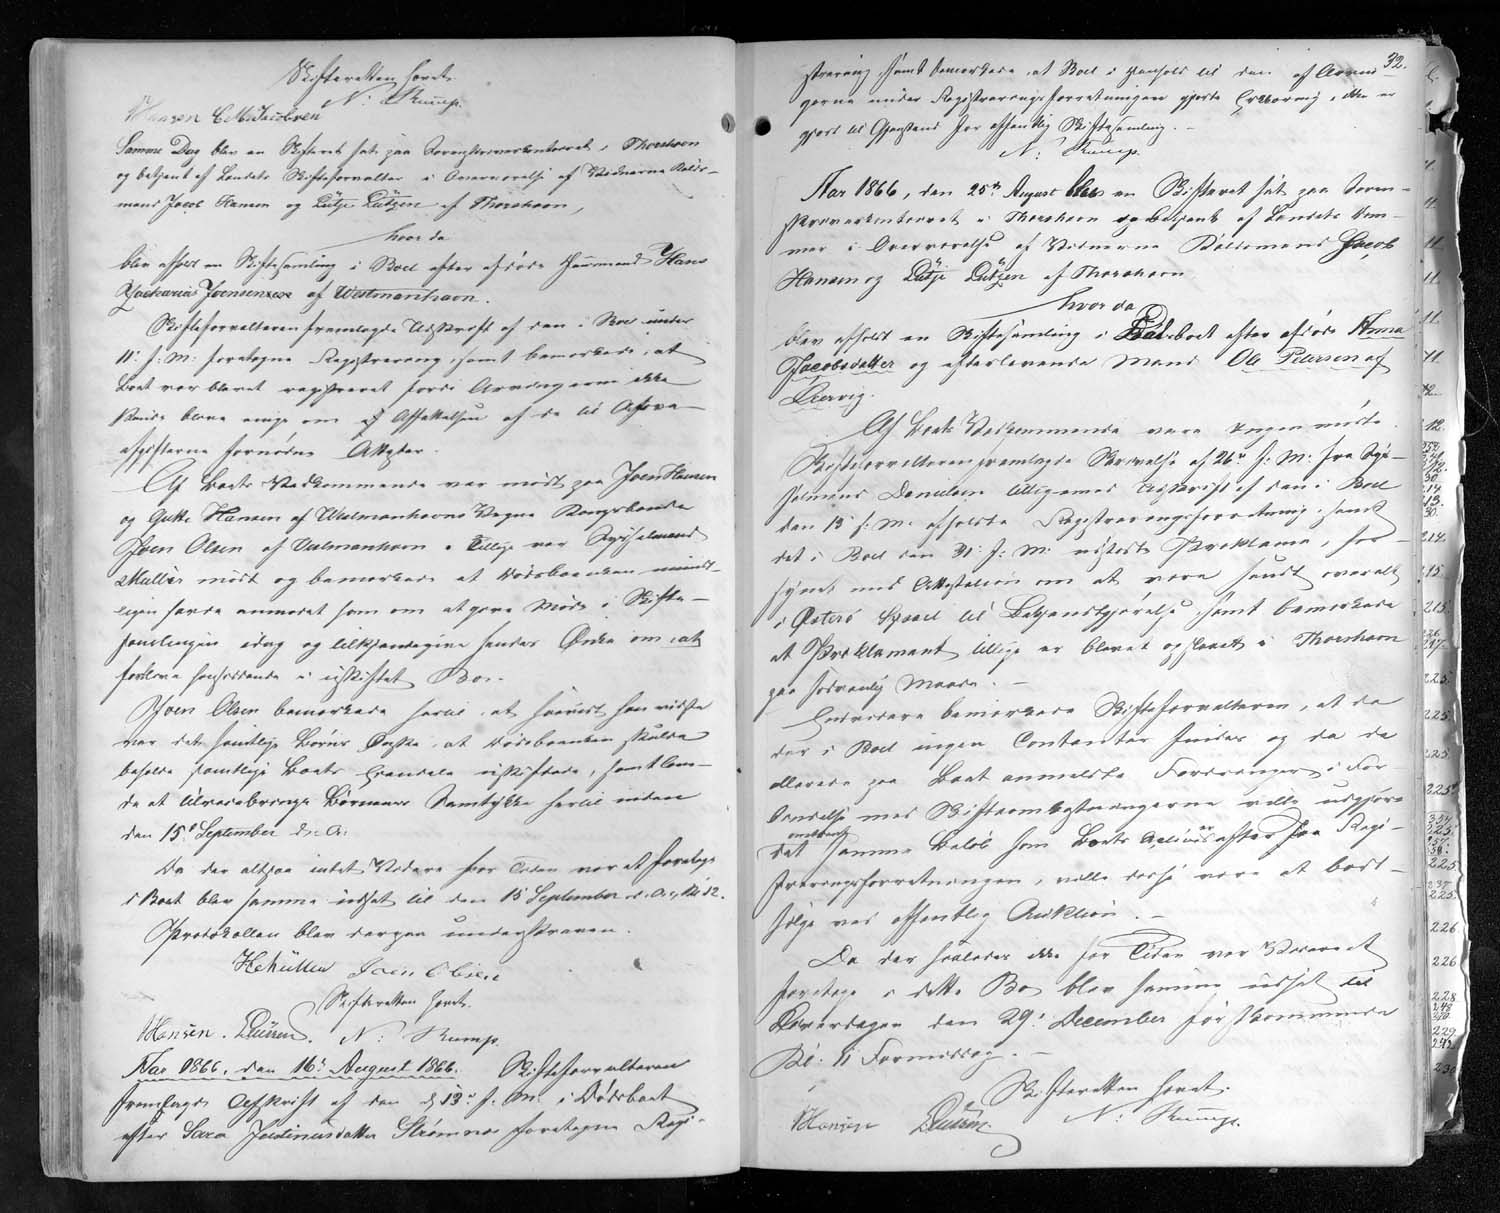 Skifteretten hævet.
N: Rump.
Hansen C M Jacobsen
Samme Dag blev en Skifteret sat paa Sorenskriverkontoret i Thorshavn
og betjent af Landets Skifteforvalter i Overværelse af Vidnerne Rolds-
mand Jacob Hansen og Lütje Lützen af Thorshavn,
hvor da
blev afholdt en Skiftesamling i Boet efter afdøde Huusmand Hans
Zacharias Joensen af Westmanhavn.
Skifteforvalteren fremlagde Udskrift af den i Boet under
11' f: M: foretagne Registrering, samt bemærkede, at
Boet var blevet registreret fordi Arvingerne ikke
kunde blive enige om Affattelsen af de til
afgifterne fornødne Attester.
Af Boets Vedkommende var mødt paa Joen Hansen
og Hansen af Westmanhavns Vegne Kongsbonde
Joen Olsen af Vestmanhavn. Tillige var Sysselmand
Müller mødt og bemærkede at Dødsboenken mundt-
ligen havde anmodet ham om at give Møde i Skifte-
samlingen idag og tilkjendegive hendes Ønske om at
forblive hensiddende i uskiftet Bo.
Joen Olsen bemærkede hertil, at saavidt han vidste
var det samtlige Børns Ønske, at Dødsboenken skulde
beholde samtlige Boets Eiendele uskiftede, samt lov-
de at tilveiebringe Børnenes Samtykke hertil inden
den 15' September d: A:
Da der altsaa intet Videre for Tiden var at foretage
i Boet blev samme udsat til den 15' September d. A., Kl 12.
Protokollen blev derpaa underskreven.
HMüller Joen Olsen
Skifteretten hævet.
Hansen. LLützen. N: Rump.
Aar 1866, den 16' August 1866. Skifteforvalteren
fremlagde Afskrift af den d 13' f. M. i Dødsboet
efter Sara Justinusdatter Strømnæs foretagne Regi-
32.
strering, samt bemærkede at Boet i Henhold til den af Arvin-
gerne under Registreringsforretningen gjorte Erklæring, ikke er
gjort til Gjenstand for offentlig Skiftesamling. -
N: Rump.
Aar 1866, den 25' August blev en Skifteret sat paa Soren-
skriverkontoret i Thorshavn og betjent af Landets Dom-
mer i Overværelse af Vidnerne Roldsmand Jacob
Hansen og Lütje Lützen af Thorshavn
hvor da
blev afholdt en Skiftesamling i Dødsboet efter afdøde Anna
Jacobsdatter og efterlevende Mand Ole Petersen af
Leervig.
Af Boets Vedkommende vare Ingen mødte.
Skifteforvalteren fremlagde Skrivelse af 26' f: M: fra Sys-
selmand Danielsen tilligemed Udskrift af den i Boet
den 13' f. M. afholdte Registreringsforretning, samt
det i Boet den 31' f: M: udstedte Proklama, for-
synet med Attestation om at være sendt overalt
i Østerø Syssel til Bekjendtgjørelse, samt bemærkede
at Proklamaet tillige er blevet opslaaet i Thorshavn
paa sædvanlig Maade. -
Endvidere bemærkede Skifteforvalteren, at da
der i Boet ingen Contanter findes og da de
allerede paa Boet anmeldte Fordringer i For-
bindelse med Skifteomkostningerne ville udgjøre
omtrent
det samme Beløb som Boets Activer efter Regi-
streringsforretningen, ville disse være at bort-
sælge ved offentlig Auktion. -
Da der saaledes ikke for Tiden var Videre at
foretage i dette Bo blev samme udsat til
Løverdagen den 29' December førstkommende
Kl: 11 Formiddag. -
Skifteretten hævet.
Hansen LLützen. N: Rump.